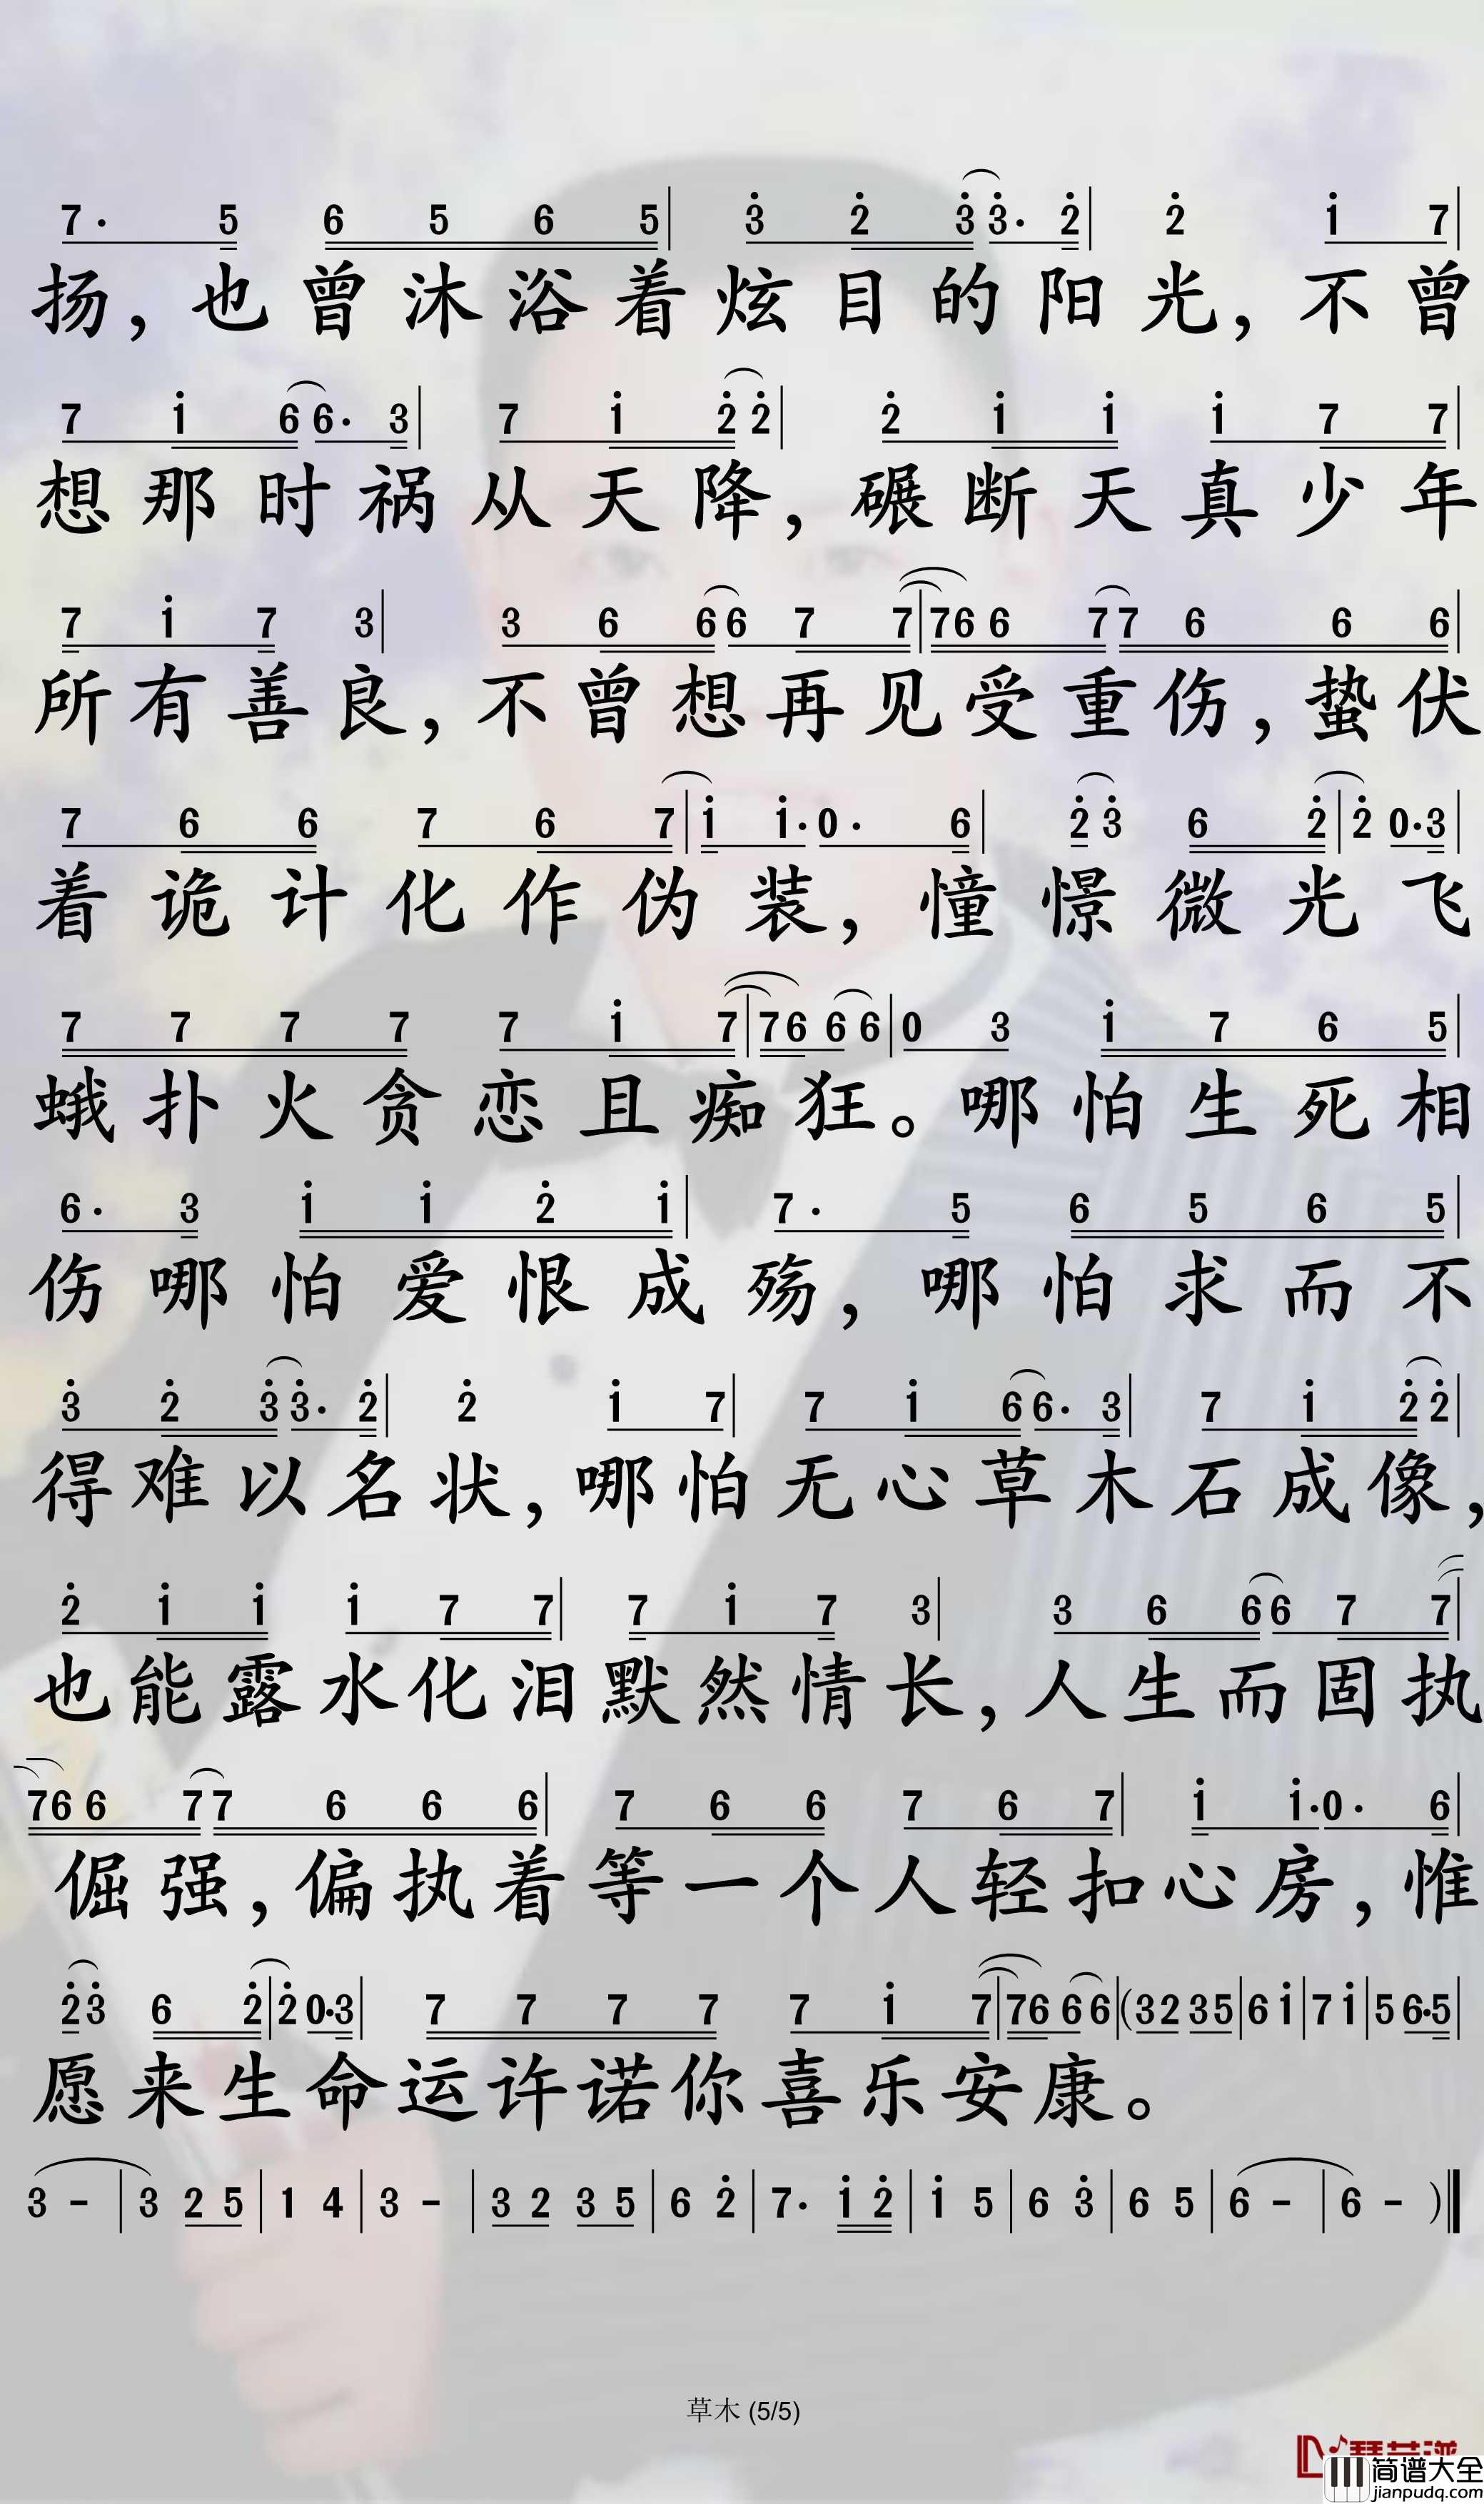 7· 5 6 5 6 5 | 3̇ 2̇ 3̇ 3̇· 2̇ | 2̇ 1̇ 7 |
扬，也曾沐浴着炫目的阳光，不曾
7 1̇ 6 6· 3 | 7 1̇ 2̇ 2̇ | 2̇ 1̇ 1̇ 1̇ 7 7 |
想那时祸从天降，碾断天真少年
7 1̇ 7 3 | 3 6 6 6 7 7 | 7 6 6 7 7 6 6 6 |
所有善良，不曾想再见受重伤，蛰伏
7 6 6 7 6 7 | 1̇ 1̇· 0· 6 | 2̇ 3̇ 6 2̇ | 2̇ 0· 3 |
着诡计化作伪装，憧憬微光飞
7 7 7 7 7 1̇ 7 | 7 6 6 6 | 0 3 1̇ 7 6 5 |
蛾扑火贪恋且痴狂。哪怕生死相
6· 3 1̇ 1̇ 2̇ 1̇ | 7· 5 6 5 6 5 |
伤哪怕爱恨成殇，哪怕求而不
3̇ 2̇ 3̇ 3̇· 2̇ | 2̇ 1̇ 7 | 7 1̇ 6 6· 3 | 7 1̇ 2̇ 2̇ |
得难以名状，哪怕无心草木石成像，
2̇ 1̇ 1̇ 1̇ 7 7 | 7 1̇ 7 3 | 3 6 6 6 7 7 |
也能露水化泪默然情长，人生而固执
7 6 6 7 7 6 6 6 | 7 6 6 7 6 7 | 1̇ 1̇· 0· 6 |
倔强，偏执着等一个人轻扣心房，惟
2̇ 3̇ 6 2̇ | 2̇ 0· 3 | 7 7 7 7 7 1̇ 7 | 7 6 6 6 | (3 2 3 5 | 6 1̇ | 7 1̇ | 5 6· 5 |
愿来生命运许诺你喜乐安康。
3 - | 3 2 5 | 1 4 | 3 - | 3 2 3 5 | 6 2̇ | 7· 1̇ 2̇ | 1̇ 5 | 6 3̇ | 6 5 | 6 - | 6 - )‖
草木 (5/5)
简谱大全
jianpudq.com